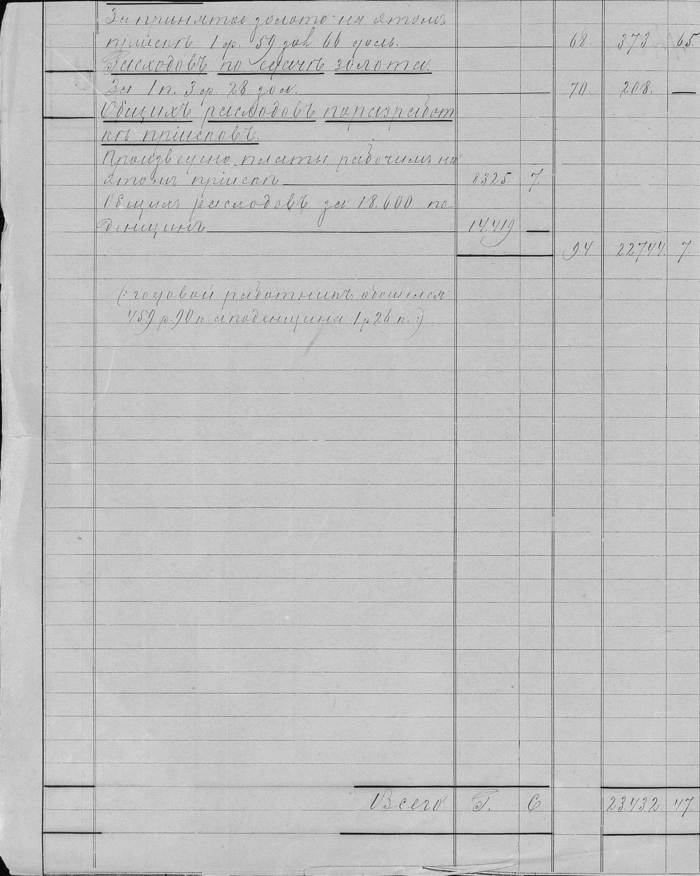 За принятое золото на этомъ
пріискѣ 1 ф. 59 зол 66 доль. 68 373 65
Расходовъ по сдачѣ золота.
За 1 п. 3 ф. 28 зол. 70 208. —
Общихъ расходовъ по разработ
кѣ пріисковъ
Произведено платы рабочимъ на
этомъ пріискѣ 8325 7
Общихъ расходовъ за 18.600 по
денщинъ 14419 —
94 22744 7
(годовой работникъ обошелся
459 р 90 к а поденщина 1 р 26 к.)
Всего 23432 47